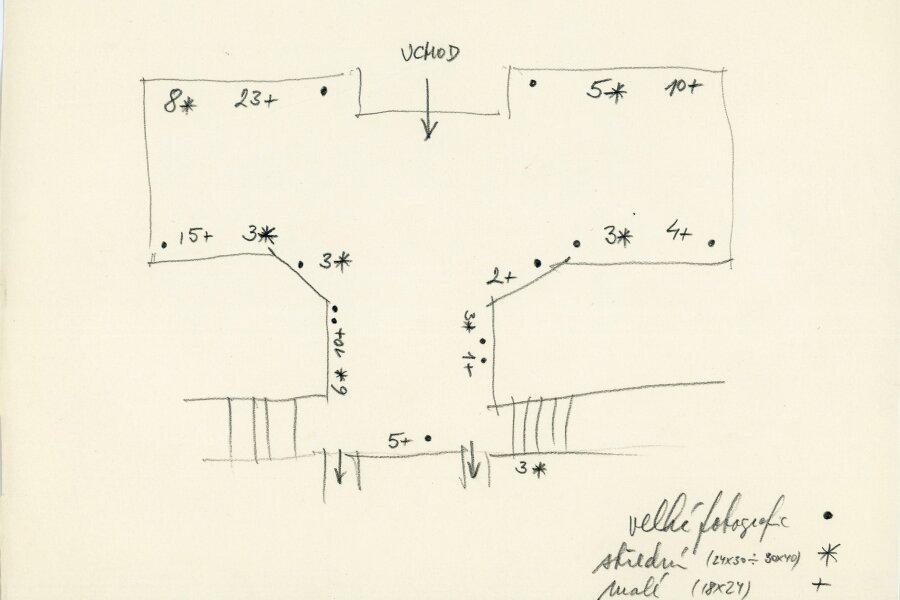 VCHOD
8* 23+ •
• 5* 10+
• 15+ 3*
• 3*
3* 4+ •
2+ •
10+ 6*
3* • • 1+
5+ •
3*
velké fotografie •
střední (24x30÷30x40) *
malé (18x24) +